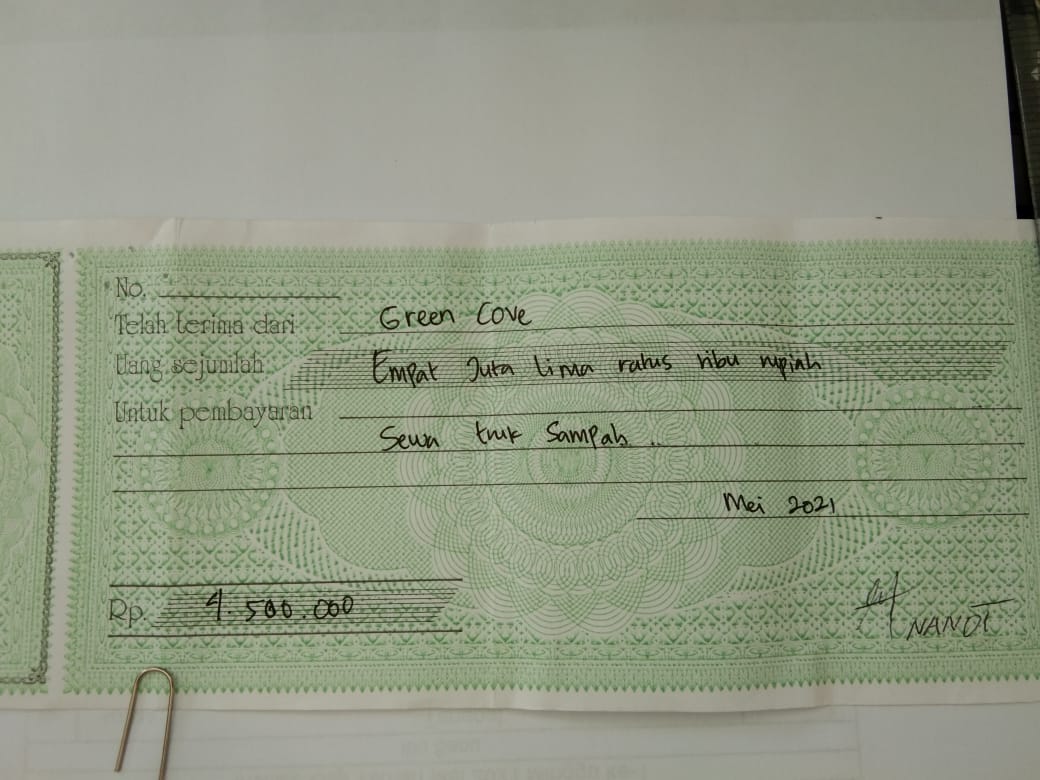 No.
Telah terima dari Green Cove
Uang sejumlah Empat Juta lima ratus ribu rupiah
Untuk pembayaran
Sewa truk Sampah ..
Mei 2021
Rp. 4.500.000
NANDI